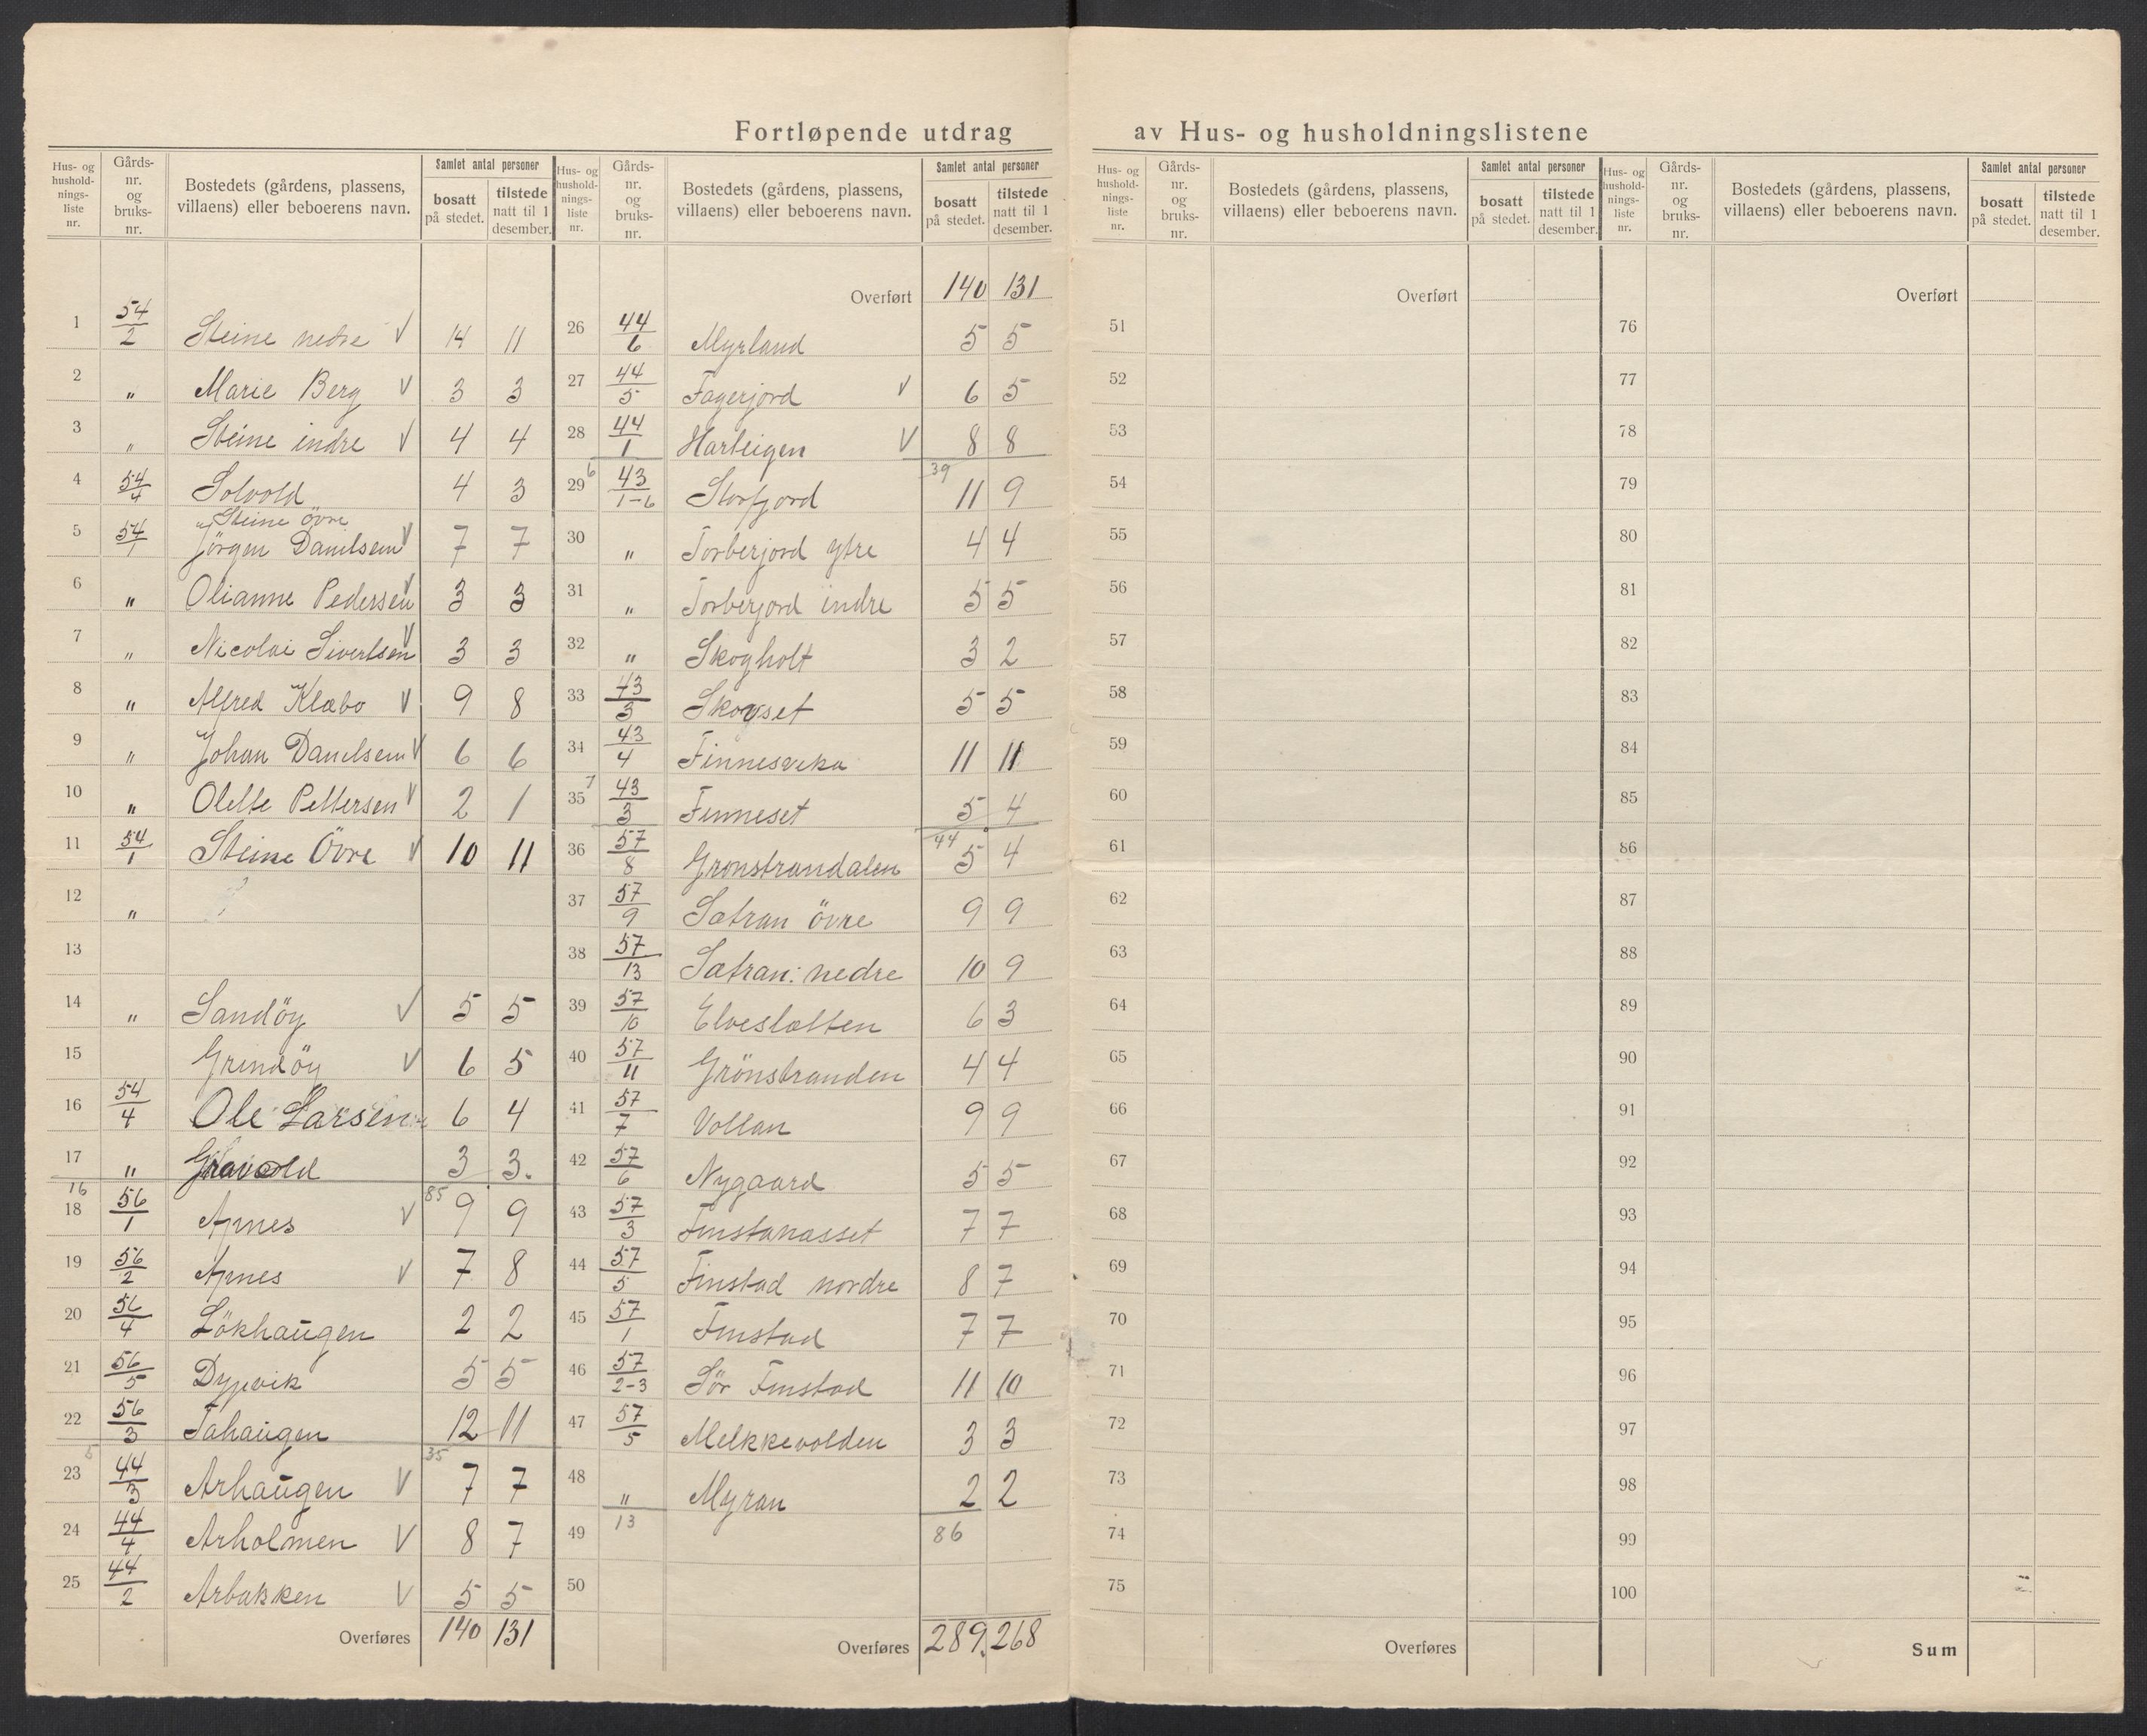 Fortløpende utdrag av Hus- og husholdningslistene
Hus- og husholdningsliste nr. Gårdsnr. og bruksnr. Bostedets (gårdens, plassens, villaens) eller beboerens navn. Samlet antal personer bosatt på stedet. tilstede natt til 1 desember.
1 54/2 Steine nedre V 14 11
2 " Marie Berg V 3 3
3 " Steine indre V 4 4
4 54/4 Solvold 4 3
Steine Övre
5 54/1 Jörgen Danilsen V 7 7
6 " Olianne Pedersen V 3 3
7 " Nicolai Sivertsen V 3 3
8 " Alfred Klæbo V 9 8
9 " Johan Danilsen V 6 6
10 " Olette Pettersen V 2 1
11 54/1 Steine Övre V 10 11
12 "
13
14 " Sandöy V 5 5
15 Grindöy V 6 5
16 54/4 Ole Larsen 6 4
17 " Gravold 3 3.
16 85
18 56/1 Apnes V 9 9
19 56/2 Apnes V 7 8
20 56/4 Lökhaugen 2 2
21 56/5 Dypvik 5 5
22 56/3 Tahaugen 12 11
5 35
23 44/3 Arhaugen V 7 7
24 44/4 Arholmen V 8 7
25 44/2 Arbakken V 5 5
Overføres 140 131
Hus- og husholdningsliste nr. Gårdsnr. og bruksnr. Bostedets (gårdens, plassens, villaens) eller beboerens navn. Samlet antal personer bosatt på stedet. tilstede natt til 1 desember.
Overført 140 131
26 44/6 Myrland 5 5
27 44/5 Fagerjord V 6 5
28 44/1 Harteigen V 8 8
6 39
29 43/1-6 Storfjord 11 9
30 " Torberjord ytre 4 4
31 " Torberjord indre 5 5
32 " Skogholt 3 2
33 43/3 Skogset 5 5
34 43/4 Finnesvika 11 11
35 7 43/3 Finneset 5 4
44
36 57/8 Grønstrandalen 5 4
37 57/9 Sætran övre 9 9
38 57/13 Sætran: nedre 10 9
39 57/10 Elveslætten 6 3
40 57/11 Grönstranden 4 4
41 57/7 Vollan 9 9
42 57/6 Nygaard 5 5
43 57/3 Finstanasset 7 7
44 57/5 Finstad nordre 8 7
45 57/1 Finstad 7 7
46 57/2-3 Sör Finstad 11 10
47 57/5 Melkkevolden 3 3
48 " Myran 2 2
49 13 86
50
Overføres 289. 268
Hus- og husholdningsliste nr. Gårdsnr. og bruksnr. Bostedets (gårdens, plassens, villaens) eller beboerens navn. Samlet antal personer bosatt på stedet. tilstede natt til 1 desember.
Overført
51
52
53
54
55
56
57
58
59
60
61
62
63
64
65
66
67
68
69
70
71
72
73
74
75
Overføres
Hus- og husholdningsliste nr. Gårdsnr. og bruksnr. Bostedets (gårdens, plassens, villaens) eller beboerens navn. Samlet antal personer bosatt på stedet. tilstede natt til 1 desember.
Overført
76
77
78
79
80
81
82
83
84
85
86
87
88
89
90
91
92
93
94
95
96
97
98
99
100
Sum